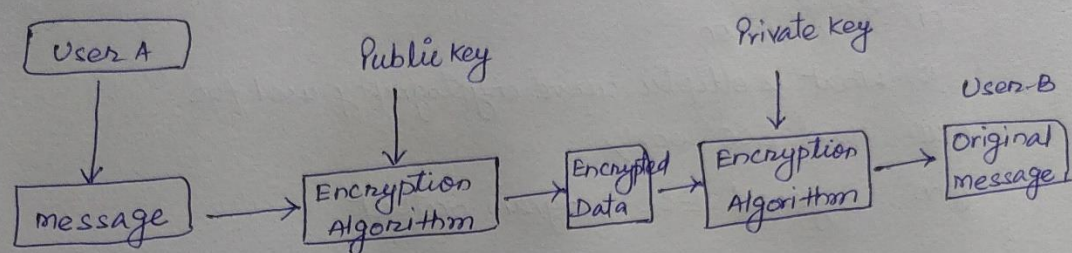 User A
Public key
Private key
User-B
message
Encryption
Algorithm
Encrypted
Data
Encryption
Algorithm
Original
message